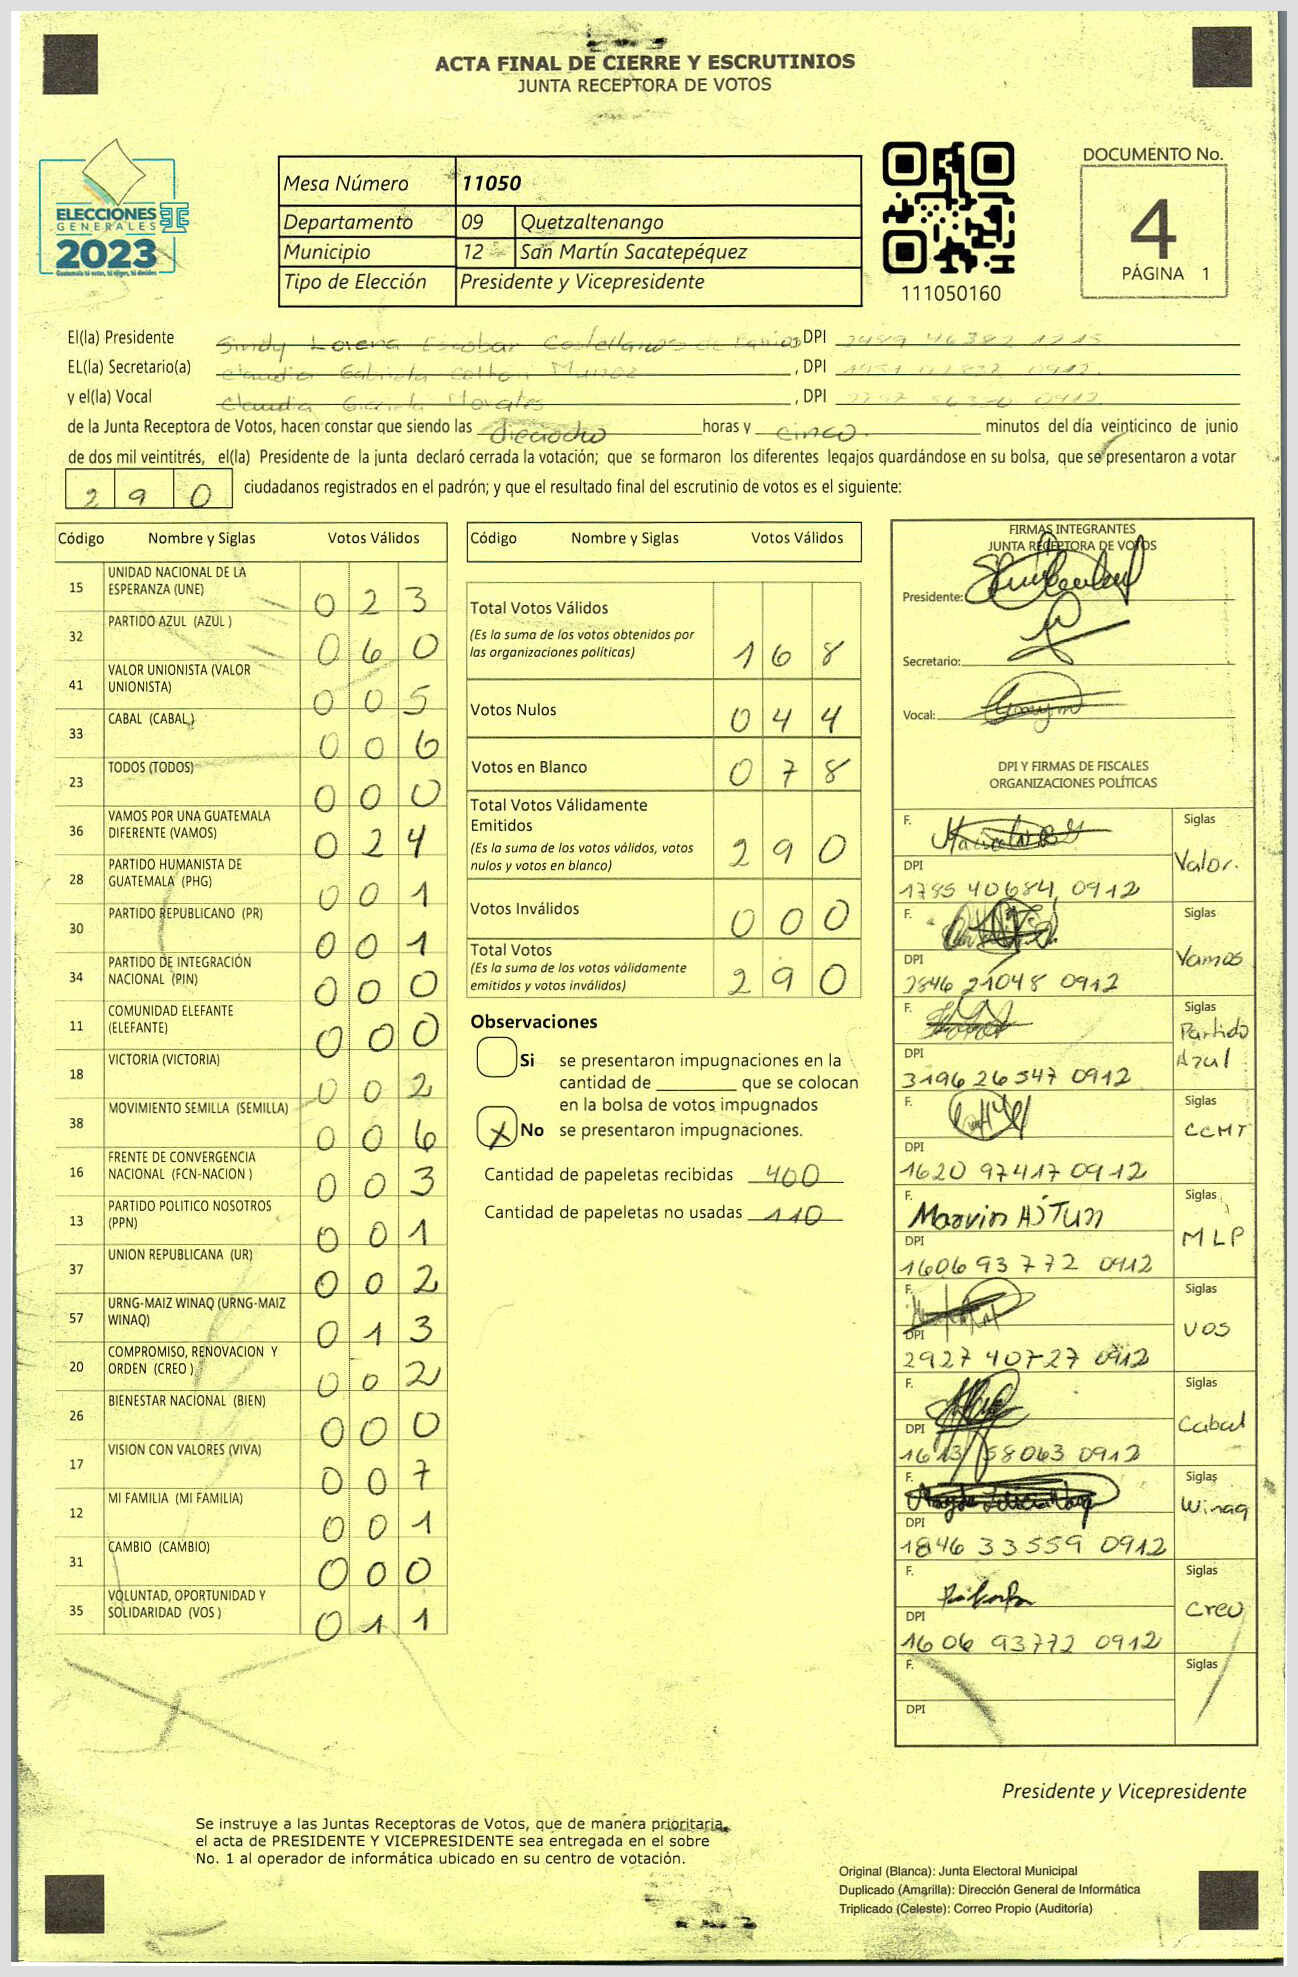 ACTA FINAL DE CIERRE Y ESCRUTINIOS
JUNTA RECEPTORA DE VOTOS
ELECCIONES
GENERALES
2023
Guatemala tú votas, tú eliges, tú decides
Mesa Número 11050
Departamento 09 Quetzaltenango
Municipio 12 San Martín Sacatepéquez
Tipo de Elección Presidente y Vicepresidente
111050160
DOCUMENTO No.
4
PÁGINA 1
El(la) Presidente Sindy Lorena Escobar Castellanos de , DPI
EL(la) Secretario(a) Claudia Gabriela , DPI 0912
y el(la) Vocal Claudia Morales , DPI 0912
de la Junta Receptora de Votos, hacen constar que siendo las dieciocho horas y cinco. minutos del día veinticinco de junio
de dos mil veintitrés, el(la) Presidente de la junta declaró cerrada la votación; que se formaron los diferentes legajos quardándose en su bolsa, que se presentaron a votar
2 9 0 ciudadanos registrados en el padrón; y que el resultado final del escrutinio de votos es el siguiente:
Código Nombre y Siglas Votos Válidos
15 UNIDAD NACIONAL DE LA ESPERANZA (UNE) 0 2 3
32 PARTIDO AZUL (AZUL ) 0 6 0
41 VALOR UNIONISTA (VALOR UNIONISTA) 0 0 5
33 CABAL (CABAL) 0 0 6
23 TODOS (TODOS) 0 0 0
36 VAMOS POR UNA GUATEMALA DIFERENTE (VAMOS) 0 2 4
28 PARTIDO HUMANISTA DE GUATEMALA (PHG) 0 0 1
30 PARTIDO REPUBLICANO (PR) 0 0 1
34 PARTIDO DE INTEGRACIÓN NACIONAL (PIN) 0 0 0
11 COMUNIDAD ELEFANTE (ELEFANTE) 0 0 0
18 VICTORIA (VICTORIA) 0 0 2
38 MOVIMIENTO SEMILLA (SEMILLA) 0 0 6
16 FRENTE DE CONVERGENCIA NACIONAL (FCN-NACION ) 0 0 3
13 PARTIDO POLITICO NOSOTROS (PPN) 0 0 1
37 UNION REPUBLICANA (UR) 0 0 2
57 URNG-MAIZ WINAQ (URNG-MAIZ WINAQ) 0 1 3
20 COMPROMISO, RENOVACION Y ORDEN (CREO ) 0 0 2
26 BIENESTAR NACIONAL (BIEN) 0 0 0
17 VISION CON VALORES (VIVA) 0 0 7
12 MI FAMILIA (MI FAMILIA) 0 0 1
31 CAMBIO (CAMBIO) 0 0 0
35 VOLUNTAD, OPORTUNIDAD Y SOLIDARIDAD (VOS ) 0 1 1
Código Nombre y Siglas Votos Válidos
Total Votos Válidos
(Es la suma de los votos obtenidos por
las organizaciones políticas) 1 6 8
Votos Nulos 0 4 4
Votos en Blanco 0 7 8
Total Votos Válidamente
Emitidos
(Es la suma de los votos válidos, votos
nulos y votos en blanco) 2 9 0
Votos Inválidos 0 0 0
Total Votos
(Es la suma de los votos válidamente
emitidos y votos inválidos) 2 9 0
Observaciones
Si se presentaron impugnaciones en la
cantidad de ________ que se colocan
en la bolsa de votos impugnados
X No se presentaron impugnaciones.
Cantidad de papeletas recibidas 400
Cantidad de papeletas no usadas 110
FIRMAS INTEGRANTES
JUNTA RECEPTORA DE VOTOS
Presidente:
Secretario:
Vocal:
DPI Y FIRMAS DE FISCALES
ORGANIZACIONES POLÍTICAS
F. Siglas
Valor.
DPI
1785 40684 0912
F. Siglas
Vamos
DPI
2846 21048 0912
F. Siglas
Partido
Azul
DPI
3196 26547 0912
F. Siglas
CCMT
DPI
1620 97417 0912
F. Marvin AJTUN Siglas
MLP
DPI
1606 93772 0912
F. Siglas
VOS
DPI
2927 40727 0912
F. Siglas
Cabal
DPI
1613 58063 0912
F. Siglas
Winaq
DPI
1846 33559 0912
F. Siglas
Creo
DPI
1606 93772 0912
F. Siglas
DPI
Presidente y Vicepresidente
Se instruye a las Juntas Receptoras de Votos, que de manera prioritaria,
el acta de PRESIDENTE Y VICEPRESIDENTE sea entregada en el sobre
No. 1 al operador de informática ubicado en su centro de votación.
Original (Blanca): Junta Electoral Municipal
Duplicado (Amarilla): Dirección General de Informática
Triplicado (Celeste): Correo Propio (Auditoría)